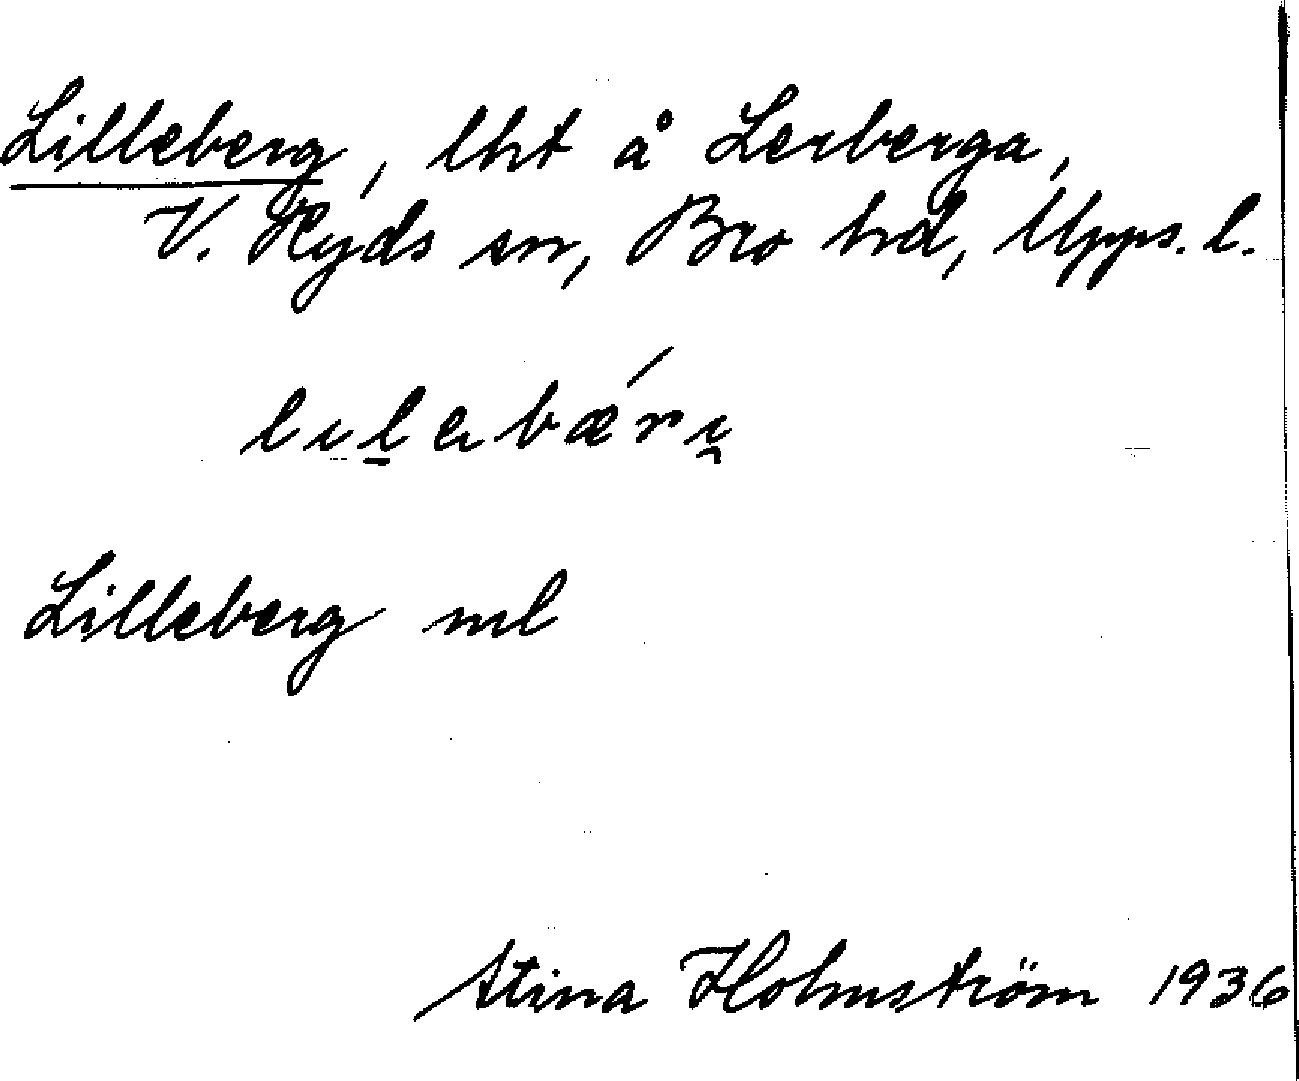 Lilleberg, lht å Lerberga,
V. Ryds sn, Bro hd, Upps. l.
Lilleberg ml
Stina Holmström 1936